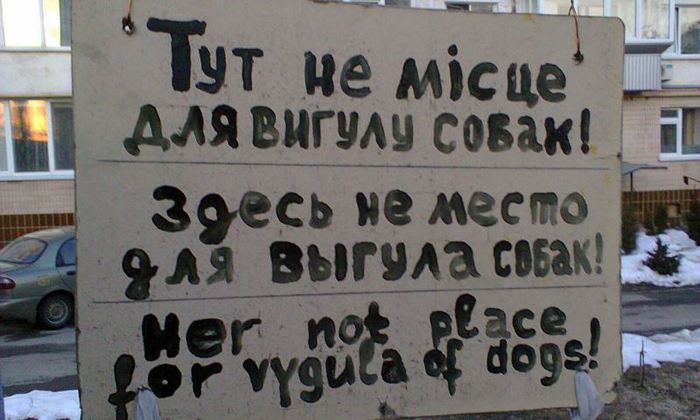 Тут не місце
для вигулу собак!
Здесь не место
для выгула собак!
Her not place
for vygula of dogs!